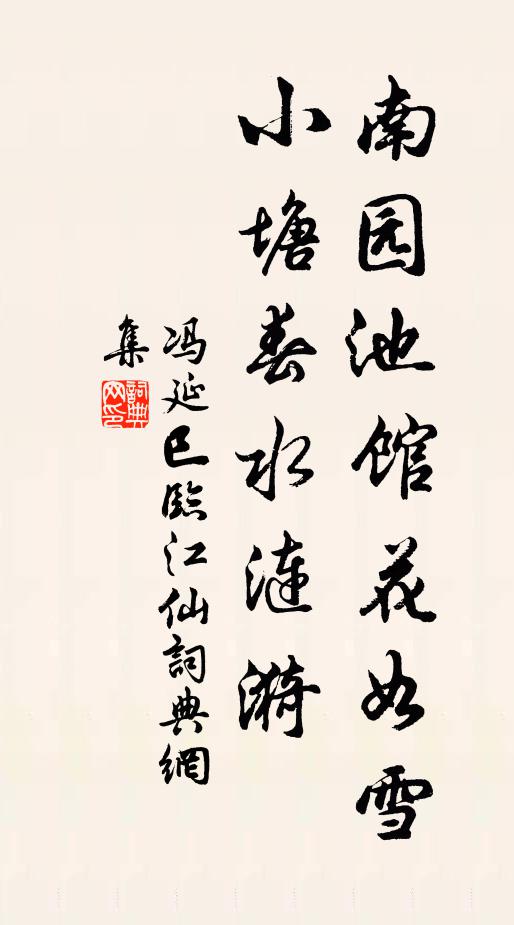 南园池馆花如雪
小塘春水涟漪
冯延巳臨江仙詞典網
集
詞典網印